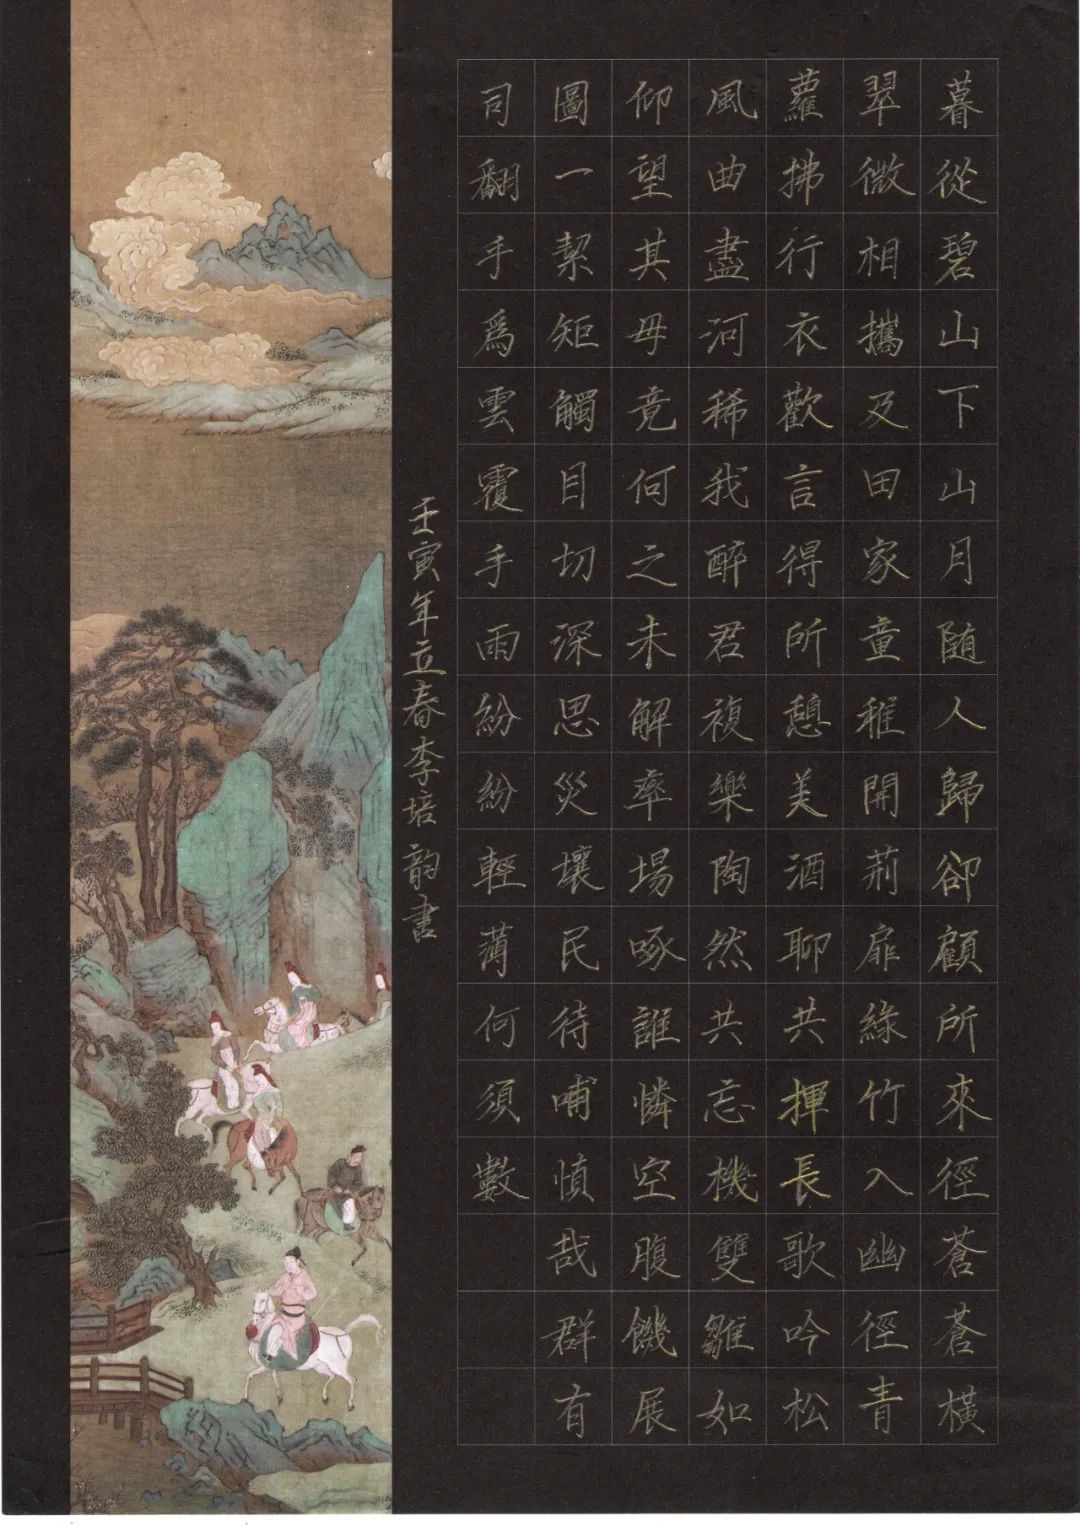 暮從碧山下山月随人歸卻顧所來徑蒼蒼橫
翠微相攜及田家童稚開荊扉綠竹入幽徑青
蘿拂行衣歡言得所憩美酒聊共揮長歌吟松
風曲盡河稀我醉君複樂陶然共忘機雙雛如
仰望其毋竟何之未解率場啄誰憐空腹饑展
圖一絜矩觸目切深思災壤民待哺慎哉群有
司翻手爲雲覆手雨紛紛輕薄何須數
壬寅年立春李培韵書